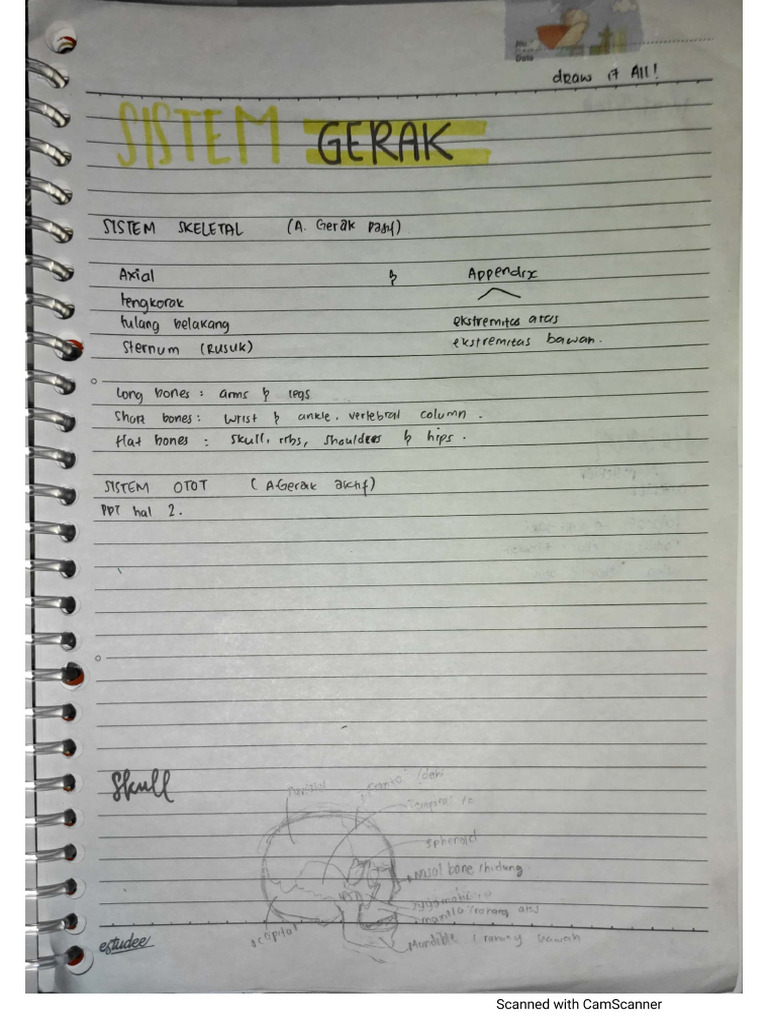 draw it All!
SISTEM GERAK
SISTEM SKELETAL (A. Gerak pasif)
Axial & Appendix
tengkorak
tulang belakang ekstremitas atas
Sternum (Rusuk) ekstremitas bawah.
Long bones: arms & legs
Short bones: wrist & ankle, vertebral column.
flat bones: skull, ribs, shoulders & hips.
SISTEM OTOT (A.Gerak aktif)
PPT hal 2.
Skull
Parietal
Frontal / dahi
Temporal
sphenoid
Nasal bone / hidung
zygomatic
maxilla / rahang atas
occipital
Mandible / rahang bawah
estudee
Scanned with CamScanner